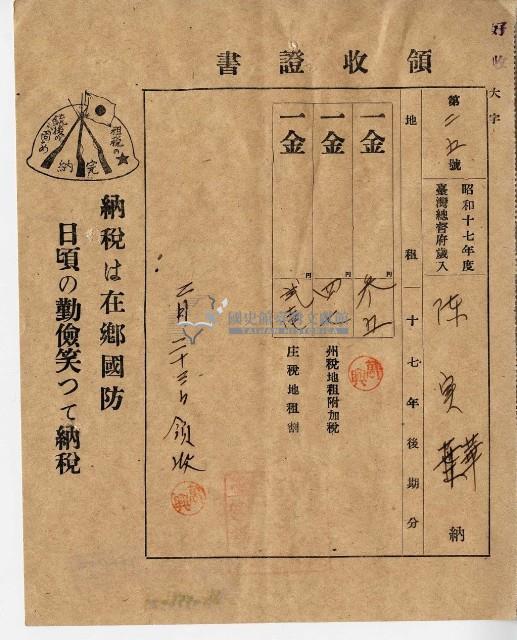 好收
大字
領收證書
第二五號
昭和十七年度
臺灣總督府歲入
陳
納
地租十七年後期分
一金
圓
參
五
一金
圓
四
州稅地租附加稅
一金
圓
庄稅地租割
二月二十三日領收
國史館臺灣文獻館
TAIWAN HISTORICA
租稅の
完納
銃後の
固め
納稅は在鄉國防
日頃の勤儉笑つて納稅